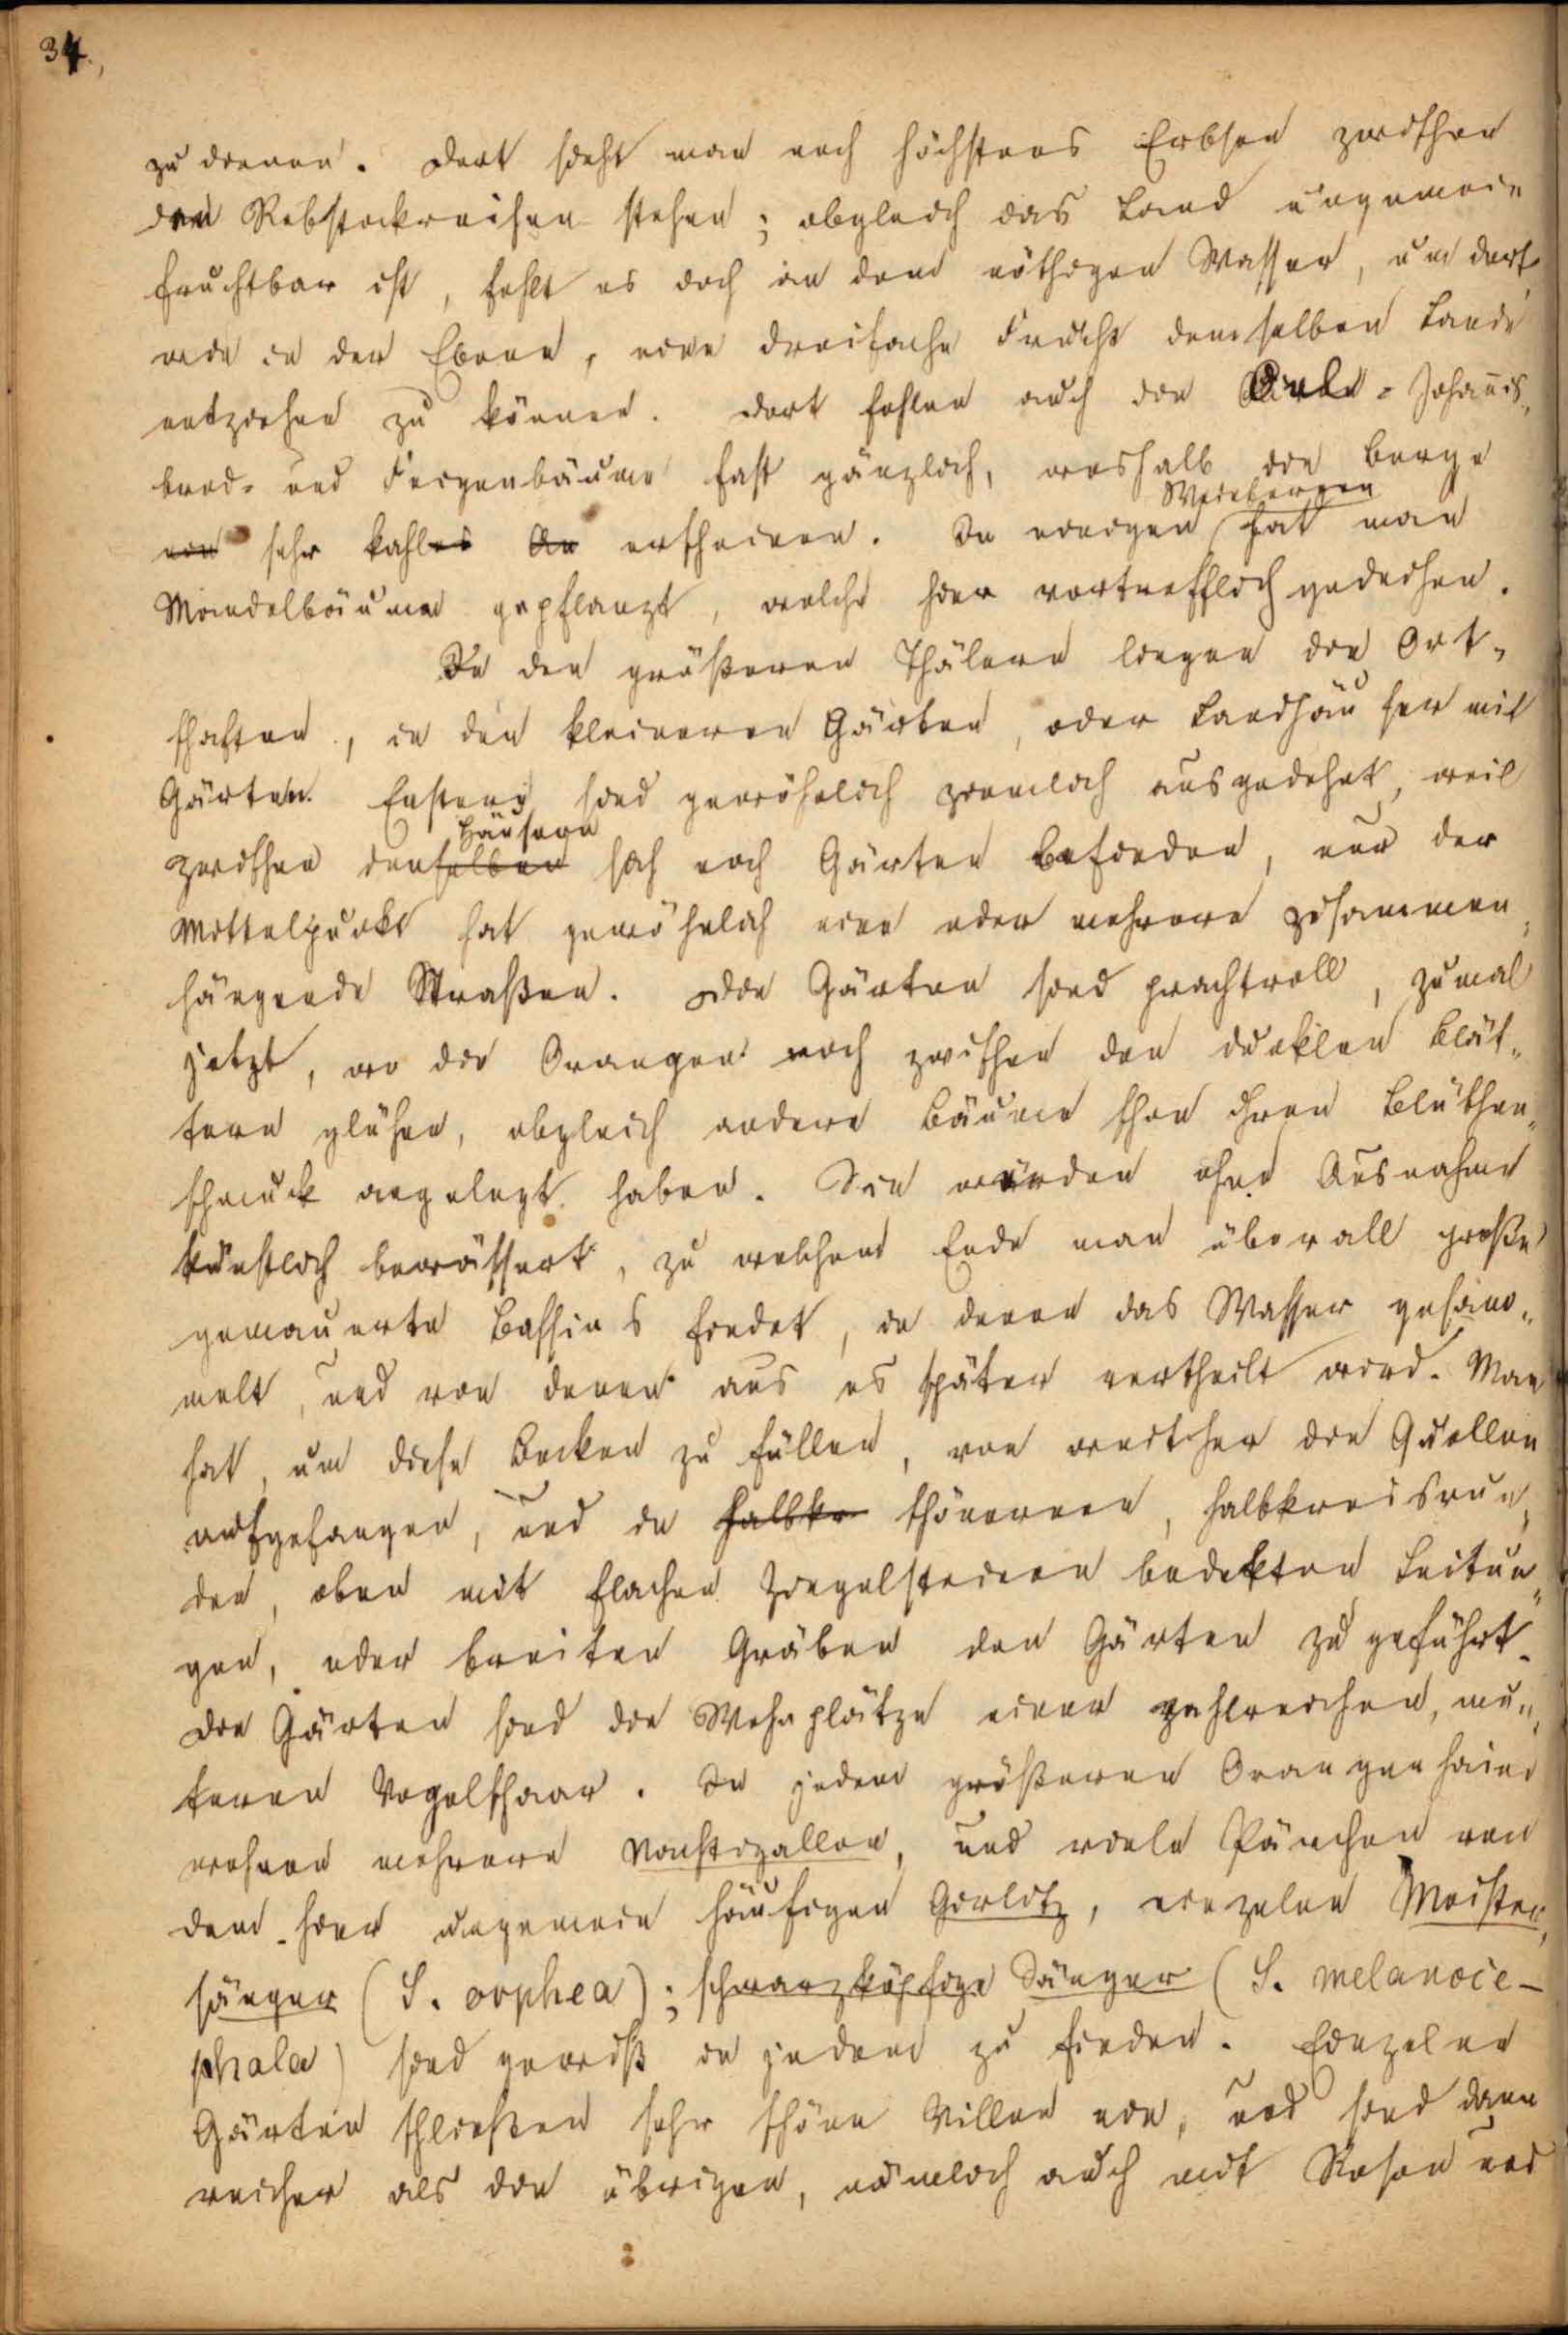 34.
zu dienen. Dort sieht man noch höchstens Erbsen zwischen
den Rebstockreihen stehen; obgleich das Land ungemein
fruchtbar ist, fehlt es doch an dem nöthigen Wasser, um dort,
wie in der Ebene, eine dreifache Frucht demselben Lande
entziehen zu können. Dort fehlen auch die Oel- Johannis-
brod- und Feigenbäume fast gänzlich, weshalb die Berge
ein sehr kahles An erscheinen. In einigen Weinbergen hat man
Mandelbäume gepflanzt, welche hier vortrefflich gedeihen.
In den größeren Thälern liegen die Ort-
schaften, in den kleineren Gärten, oder Landhäuser mit
Gärten. Erstere sind gewöhnlich ziemlich ausgedehnt, weil
zwischen denselben Häusern sich noch Gärten befinden, nur der
Mittelpunkt hat gewöhnlich eine oder mehrere zusammen-
hängende Straßen. Die Gärten sind prachtvoll, zumal
jetzt, wo die Orangen noch zwischen den dunklen Blät-
tern glühen, obgleich andere Bäume schon ihren Blüthen-
schmuck angelegt haben. Sie werden ohne Ausnahme
künstlich bewässert, zu welchem Ende man überall große
gemauerte Bassins findet, in denen das Wasser gesam-
melt, und von denen aus es später vertheilt wird. Man
hat, um diese Becken zu füllen, von weither die Quellen
aufgefangen, und in halbkr thönernen, halbkreisrun-
den, oben mit flachen Ziegelsteinen bedekten Leitun-
gen, oder breiten Gräben den Gärten zu geführt.
Die Gärten sind die Wohnplätze einer zahlreichen, mun-
teren Vogelschaar. In jedem größeren Orangenhaine
wohnen mehrere Nachtigallen, und viele Pärchen von
dem hier ungemein häufigen Girlitz, einzelne Meister-
sänger (S. orphea); schwarzköpfige Sänger (S. melanoce-
phala) sind gewiß in jedem zu finden. Einzelne
Gärten schließen sehr schöne Villen ein, und sind dann
reicher als die übrigen, nämlich auch mit Rosen und